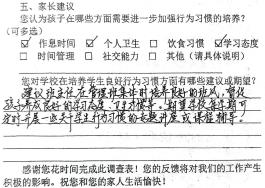 五、家长建议
您认为孩子在哪些方面需要进一步加强行为习惯的培养?
(可多选)
☑ 作息时间 ☑ 个人卫生 □ 饮食习惯 ☑学习态度
□ 时间管理 □ 社交能力 □ 其他(请具体说明)
您对学校在培养学生良好行为习惯方面有哪些建议或期望?
建议班主任在管理班集体时培养良好的班风,督促
孩子养成良好的学习态度、学习习惯。期望学校每学期可
定时开展一些关于学生行为习惯的专题讲座或课程辅导。
感谢您花时间完成此调查表!您的反馈将对我们的工作产生
积极的影响。祝您和您的家人生活愉快!